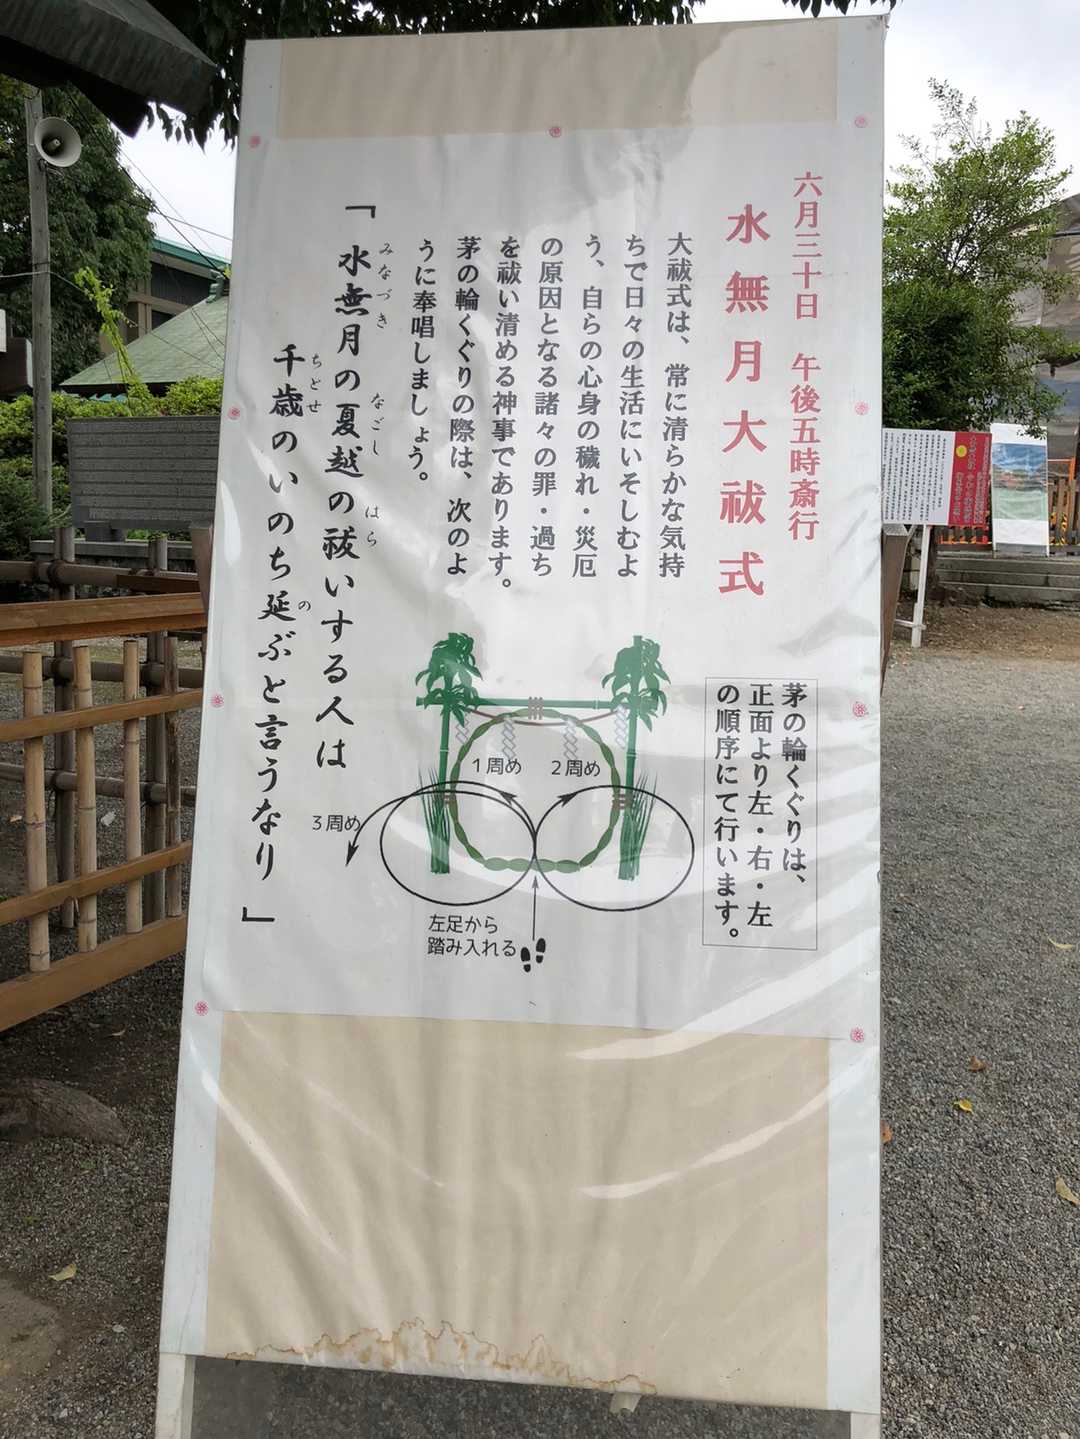 六月三十日　午後五時斎行
水無月大祓式
大祓式は、常に清らかな気持
ちで日々の生活にいそしむよ
う、自らの心身の穢れ・災厄
の原因となる諸々の罪・過ち
を祓い清める神事であります。
茅の輪くぐりの際は、次のよ
うに奉唱しましょう。
「水無月の夏越の祓いする人は
みなづき　なごし　はら
千歳のいのち延ぶと言うなり」
ちとせ　の
茅の輪くぐりは、
正面より左・右・左
の順序にて行います。
1周め
2周め
3周め
左足から
踏み入れる